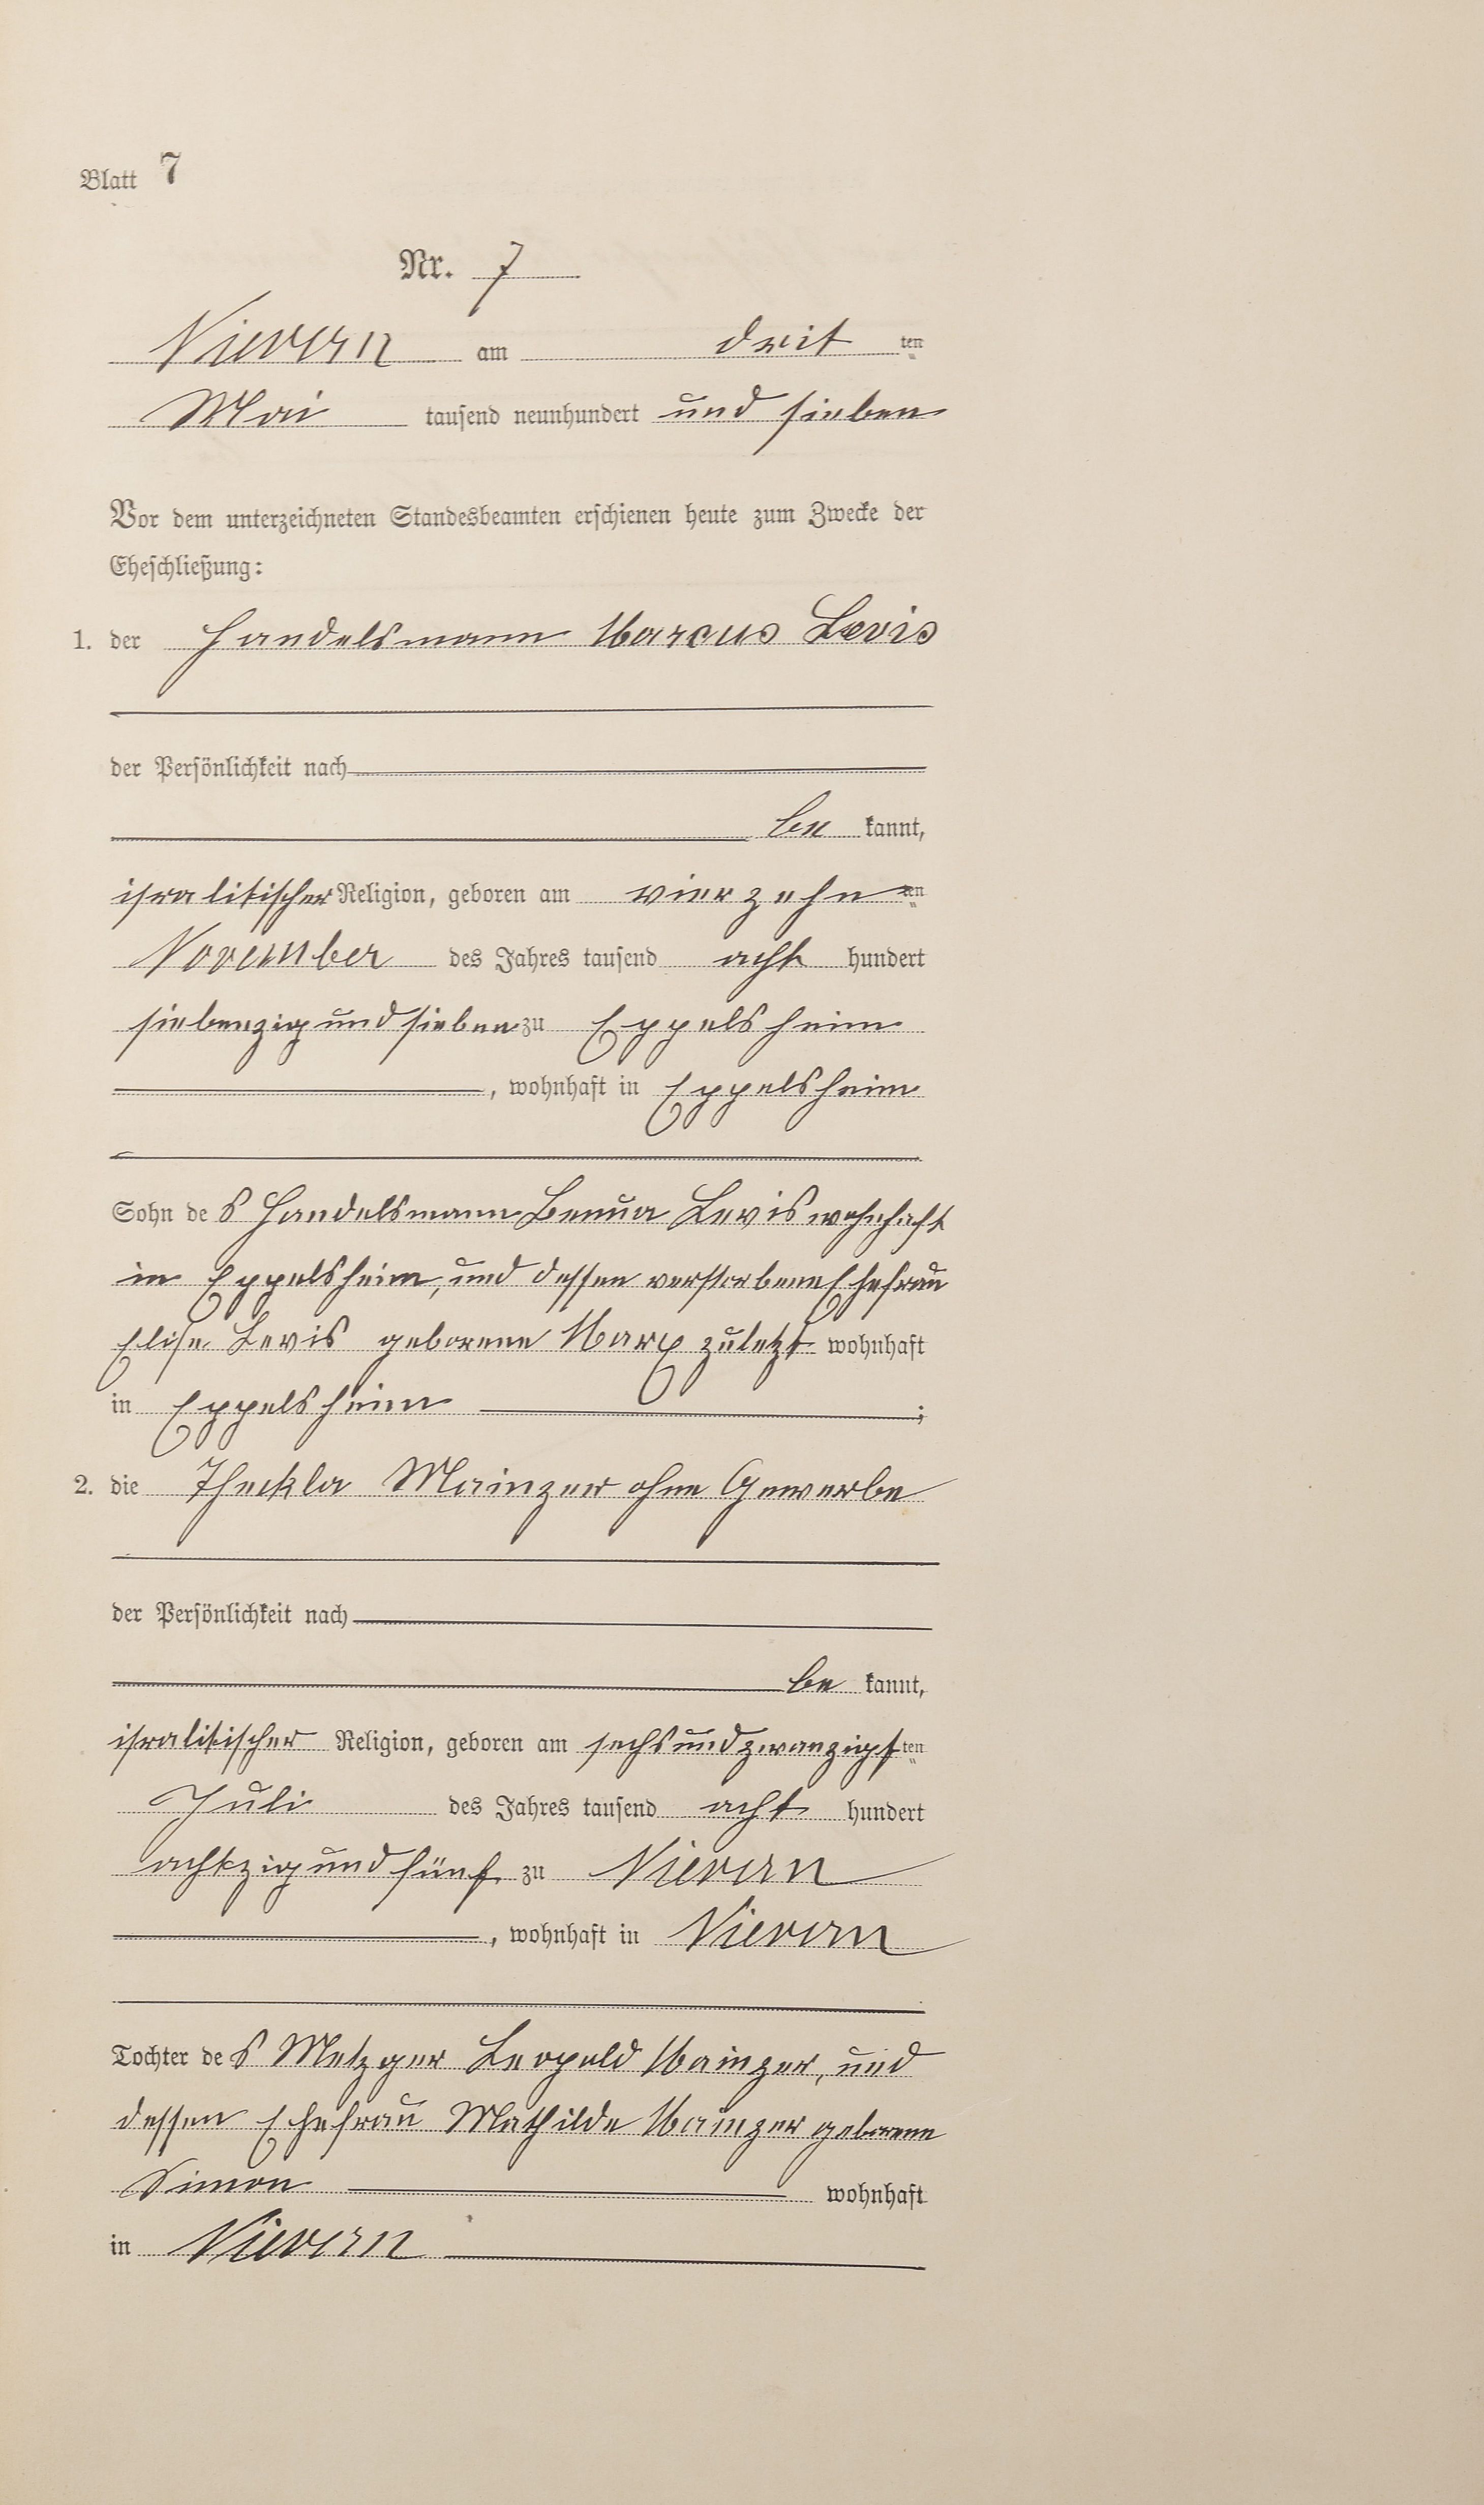 Blatt 7
Nr. 7
Nievern am drit ten
Mai tausend neunhundert und sieben
Vor dem unterzeichneten Standesbeamten erschienen heute zum Zwecke der
Eheschließung:
1. der Handelsmann Marcus Levis
der Persönlichkeit nach
be kannt,
isralitischer Religion, geboren am vierzehn ten
November des Jahres tausend acht hundert
siebenzig und sieben zu Eppelsheim
, wohnhaft in Eppelsheim
Sohn des Handelsmann Levis wohnhaft
in Eppelsheim, und dessen verstorbene Ehefrau
Elise Levis geborene Marx zuletzt wohnhaft
in Eppelsheim ;
2. die Theckla Mainzer ohne Gewerbe
der Persönlichkeit nach
be kannt,
isralitischer Religion, geboren am sechsundzwanzigsten
Juli des Jahres tausend acht hundert
achtzig und fünf zu Nievern
, wohnhaft in Nievern
Tochter des Metzger Leopold Mainzer, und
dessen Ehefrau Mathilde Mainzer geborene
Simon wohnhaft
in Nievern